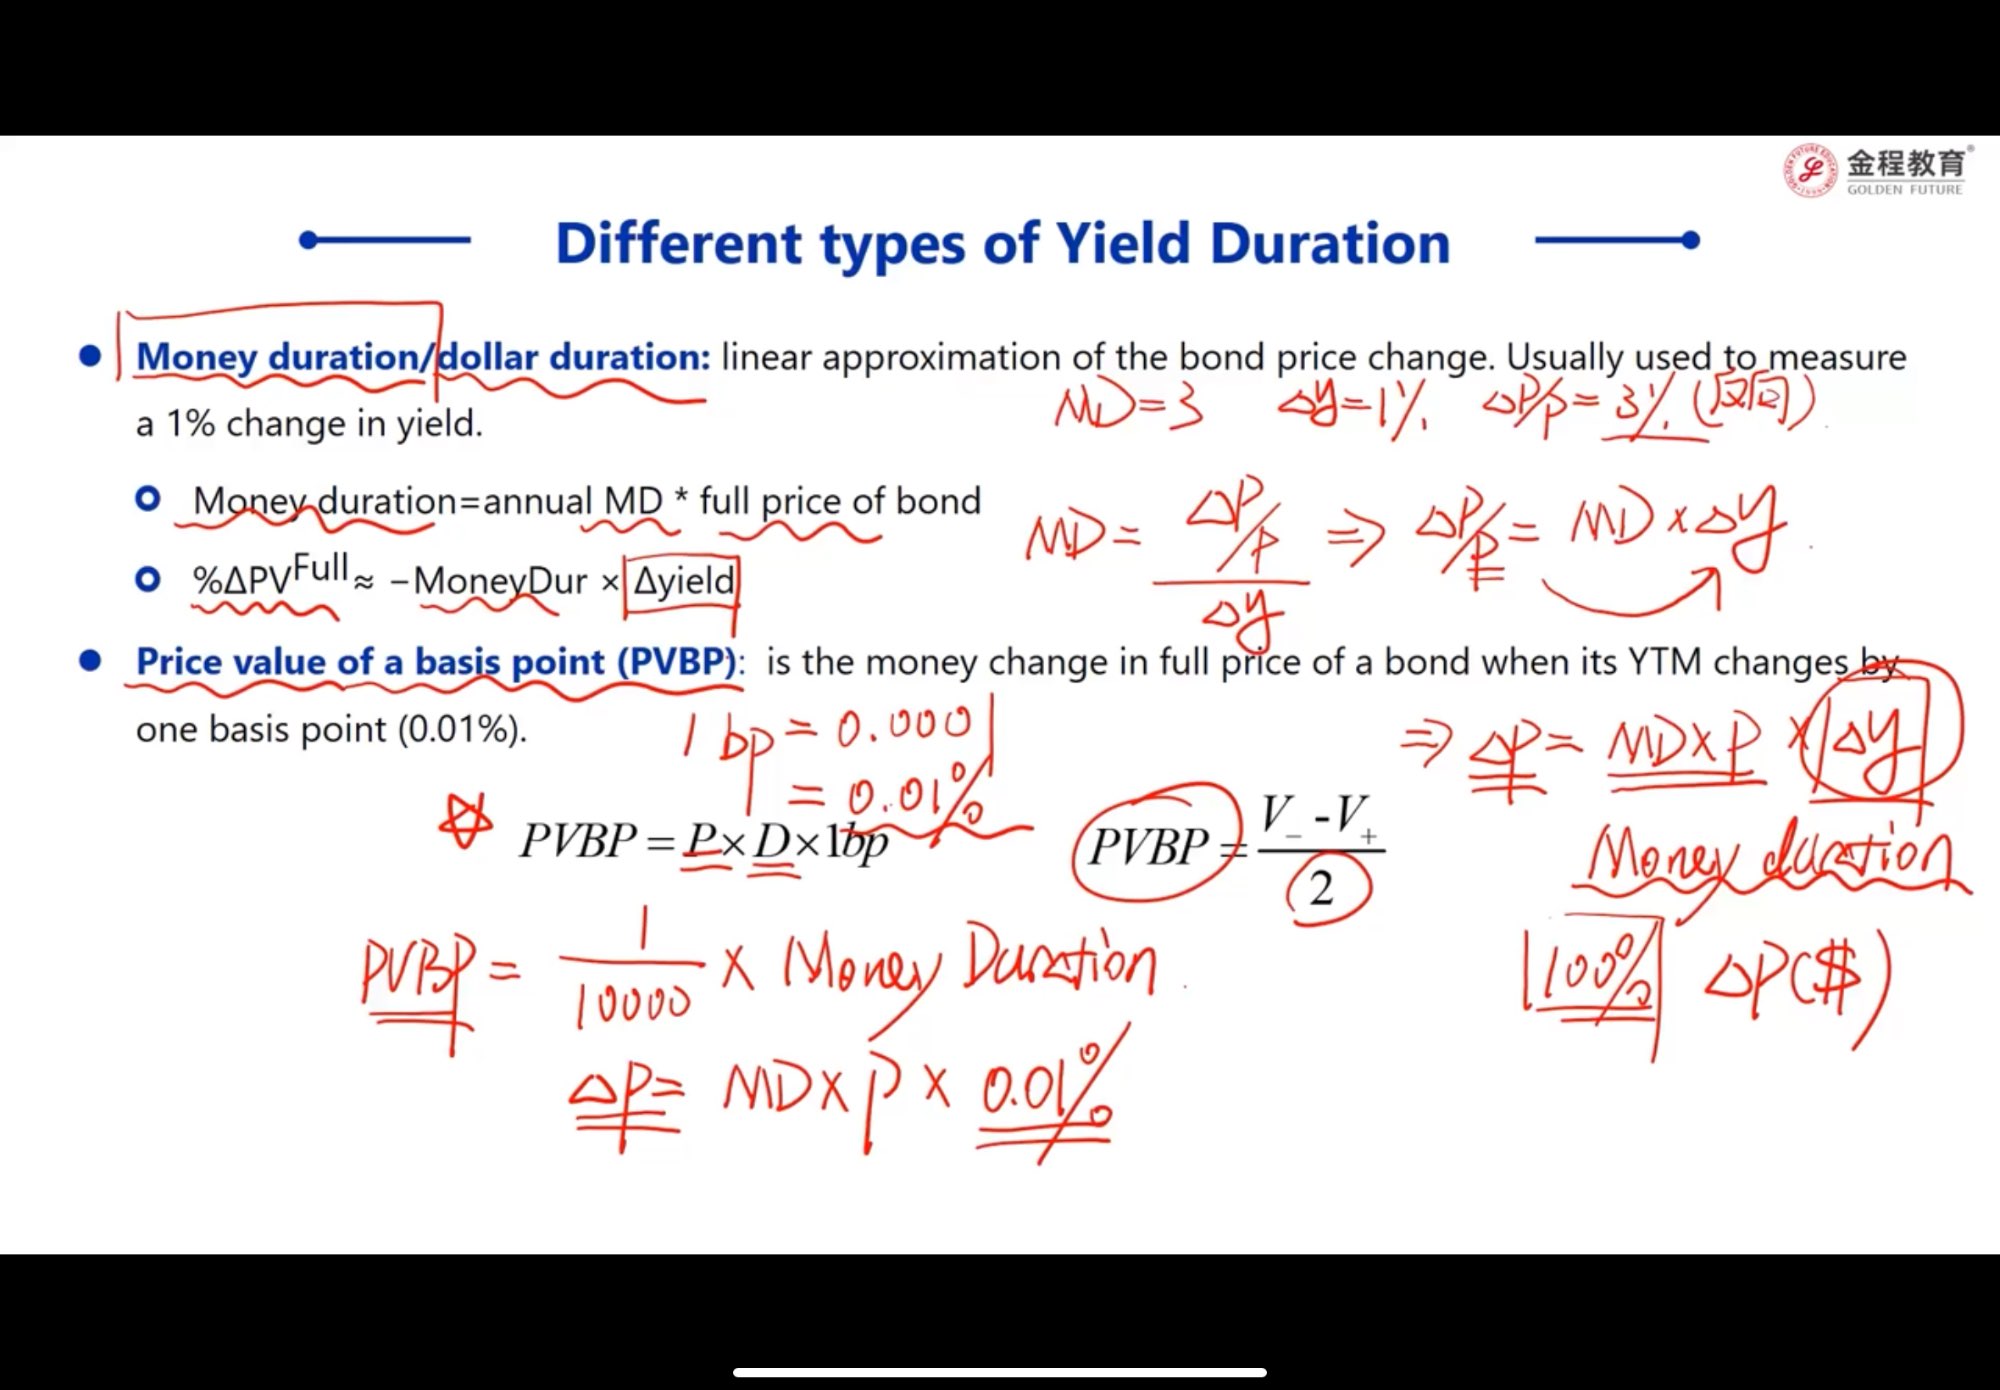 金程教育®
GOLDEN FUTURE
Different types of Yield Duration
Money duration/dollar duration: linear approximation of the bond price change. Usually used to measure
a 1% change in yield.
MD=3 Δy=1% ΔP/P=3% (反向)
Money duration=annual MD * full price of bond
MD = ΔP/P / Δy ⇒ ΔP/P = MD × Δy
%ΔPV^Full ≈ −MoneyDur × Δyield
Price value of a basis point (PVBP): is the money change in full price of a bond when its YTM changes by
one basis point (0.01%).
1 bp = 0.0001
= 0.01%
⇒ ΔP = MD×P × Δy
PVBP = P×D×1bp
PVBP = V_- - V_+ / 2
Money duration
PVBP = 1/10000 × Money Duration
100% ΔP($)
ΔP = MD × P × 0.01%